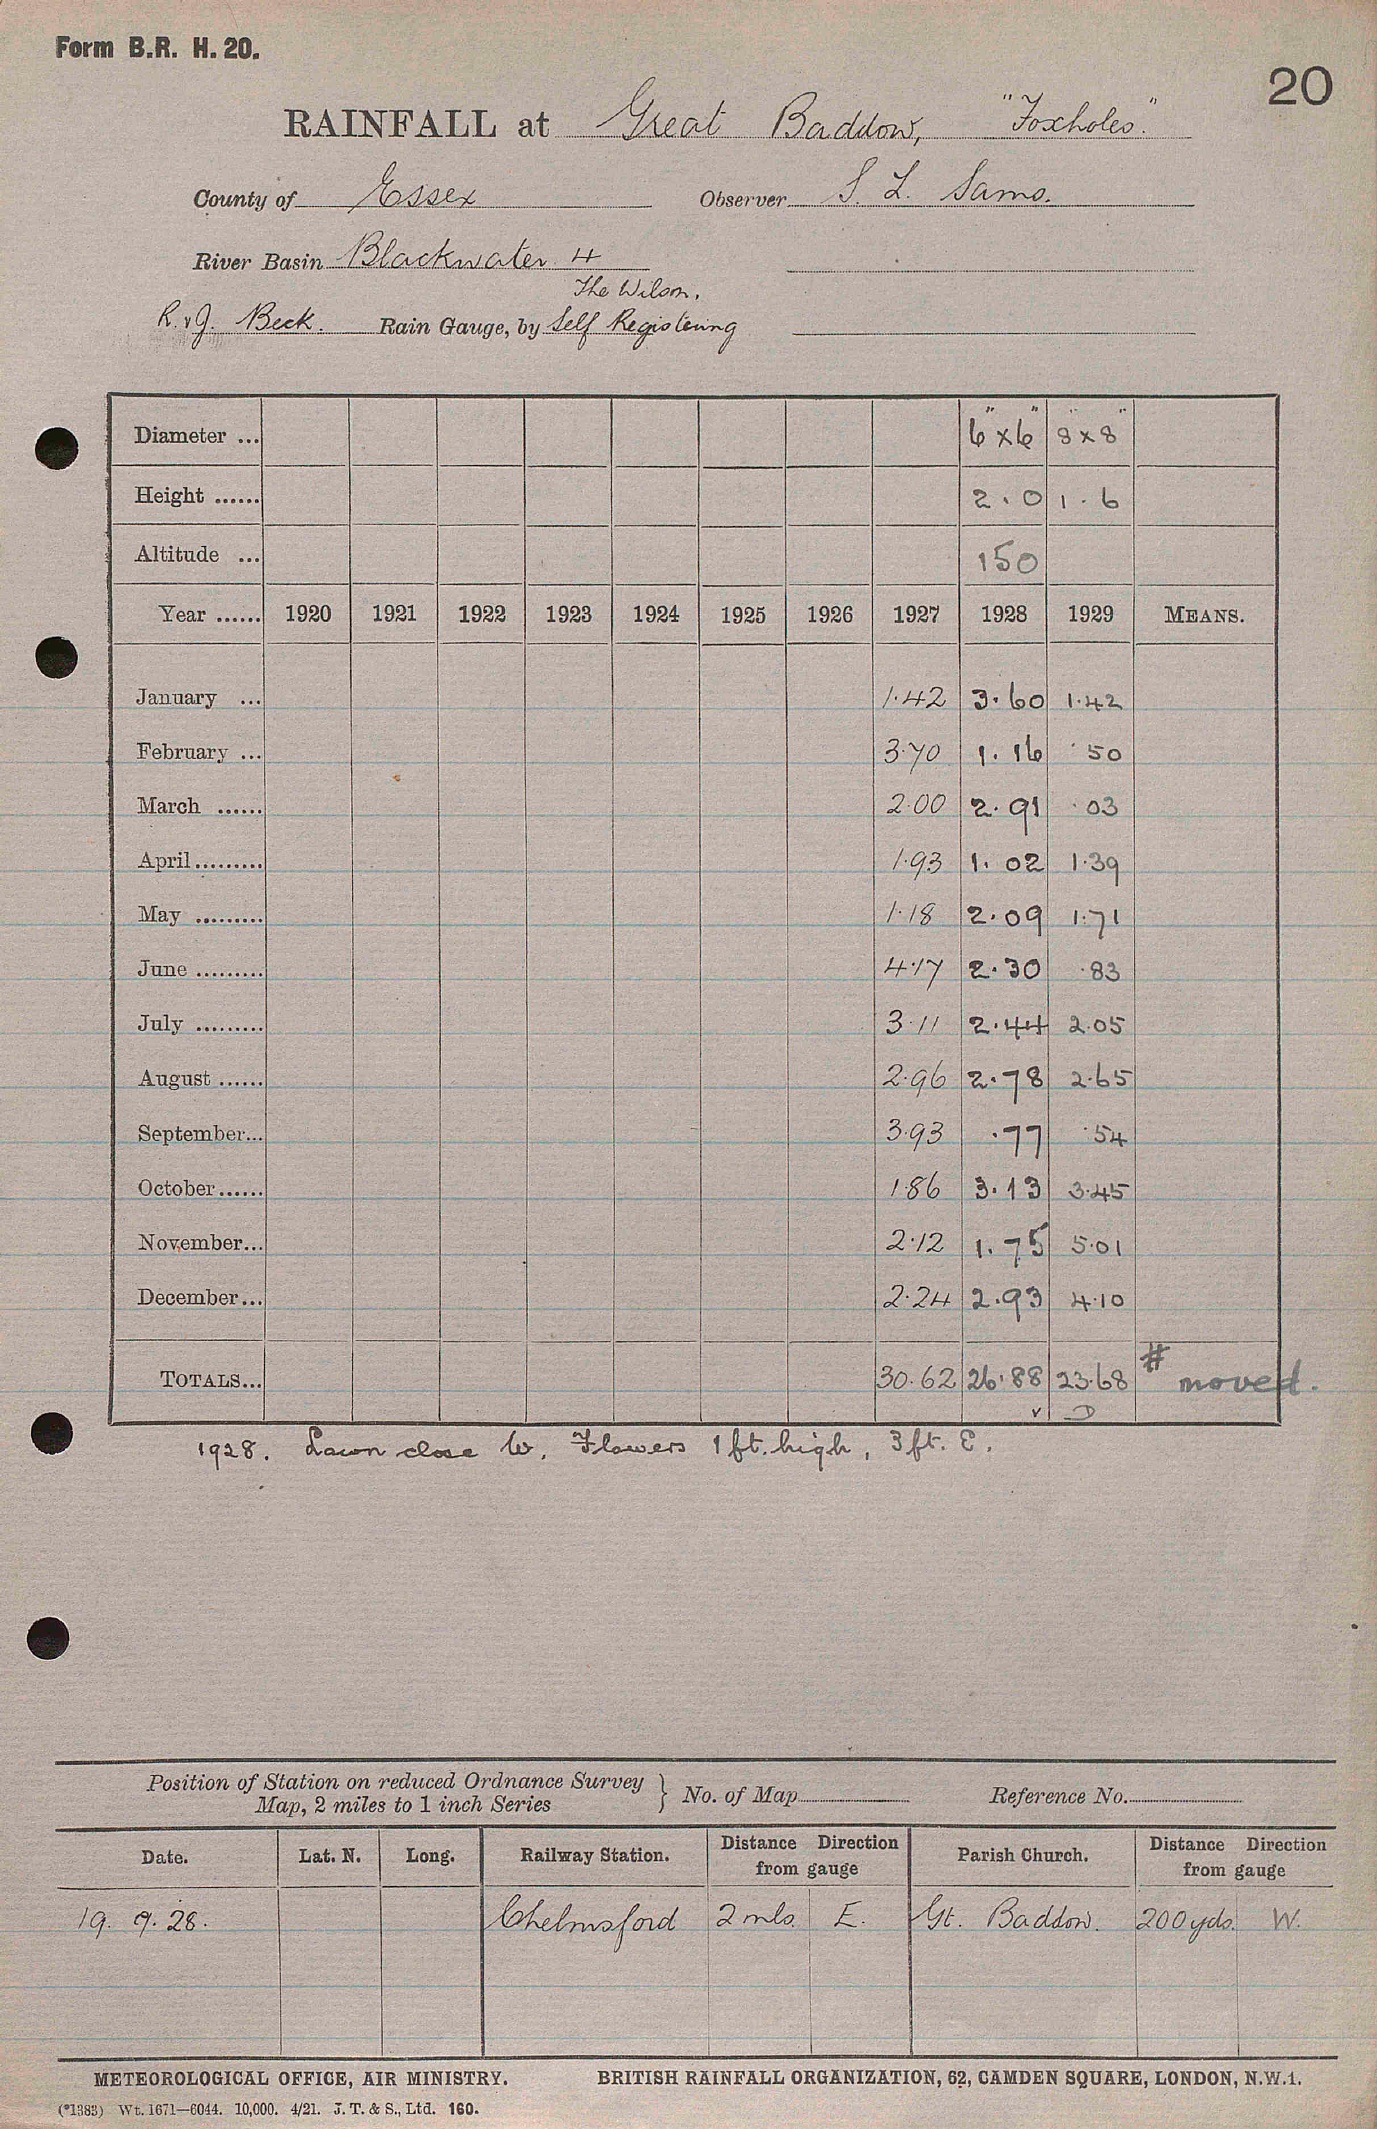 Form B.R. H. 20.
20
RAINFALL at Great Baddow, "Foxholes."
County of Essex Observer S. L. Sams.
River Basin Blackwater 4
The Wilson.
R. & J. Beck. Rain Gauge, by Self Registering
Diameter ... 6"x6" 8"x8"
Height ...... 2.0 1.6
Altitude ... 150
Year ...... 1920 1921 1922 1923 1924 1925 1926 1927 1928 1929 MEANS.
January ... 1.42 3.60 1.42
February ... 3.70 1.16 .50
March ...... 2.00 2.91 .03
April ......... 1.93 1.02 1.39
May ......... 1.18 2.09 1.71
June ......... 4.17 2.30 .83
July ......... 3.11 2.44 2.05
August ...... 2.96 2.78 2.65
September... 3.93 .77 .54
October...... 1.86 3.13 3.45
November... 2.12 1.75 5.01
December... 2.24 2.93 4.10
TOTALS... 30.62 26.88 23.68 # moved.
v D
1928. Lawn close W. Flowers 1 ft. high, 3 ft. E.
Position of Station on reduced Ordnance Survey
Map, 2 miles to 1 inch Series } No. of Map Reference No.
Date. Lat. N. Long. Railway Station. Distance Direction from gauge Parish Church. Distance Direction from gauge
19. 9. 28. Chelmsford 2 mls. E. Gt. Baddow. 200 yds. W.
METEOROLOGICAL OFFICE, AIR MINISTRY. BRITISH RAINFALL ORGANIZATION, 62, CAMDEN SQUARE, LONDON, N.W.1.
(*1383) Wt. 1671—6044. 10,000. 4/21. J. T. & S., Ltd. 160.